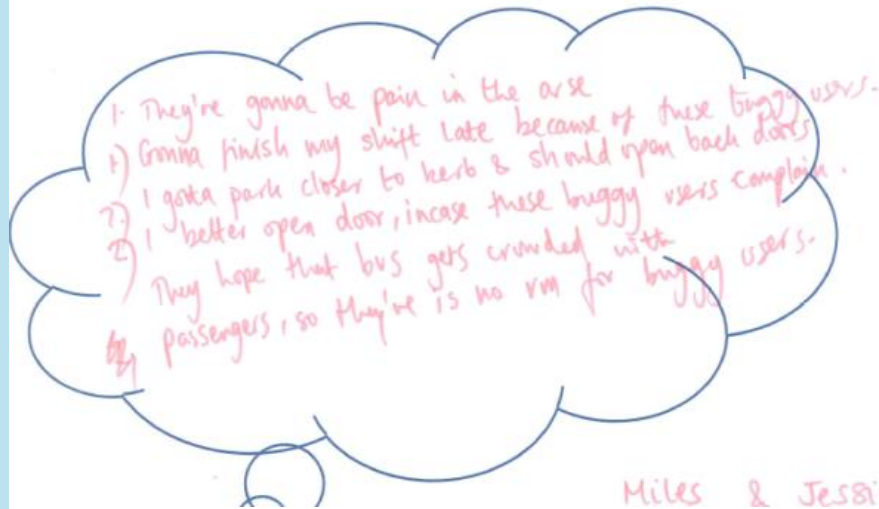 1. They're gonna be pain in the arse
1) Gonna finish my shift late because of these buggy users.
2.) I gotta park closer to kerb & should open back doors
2) I better open door, incase these buggy users complain.
They hope that bus gets crowded with
passengers, so they're is no rm for buggy users.
Miles & Jessi